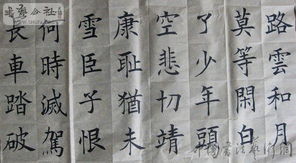 路雲和月
莫等閑白
了少年頭
空悲切靖
康耻猶未
雪臣子恨
何時滅駕
長車踏破